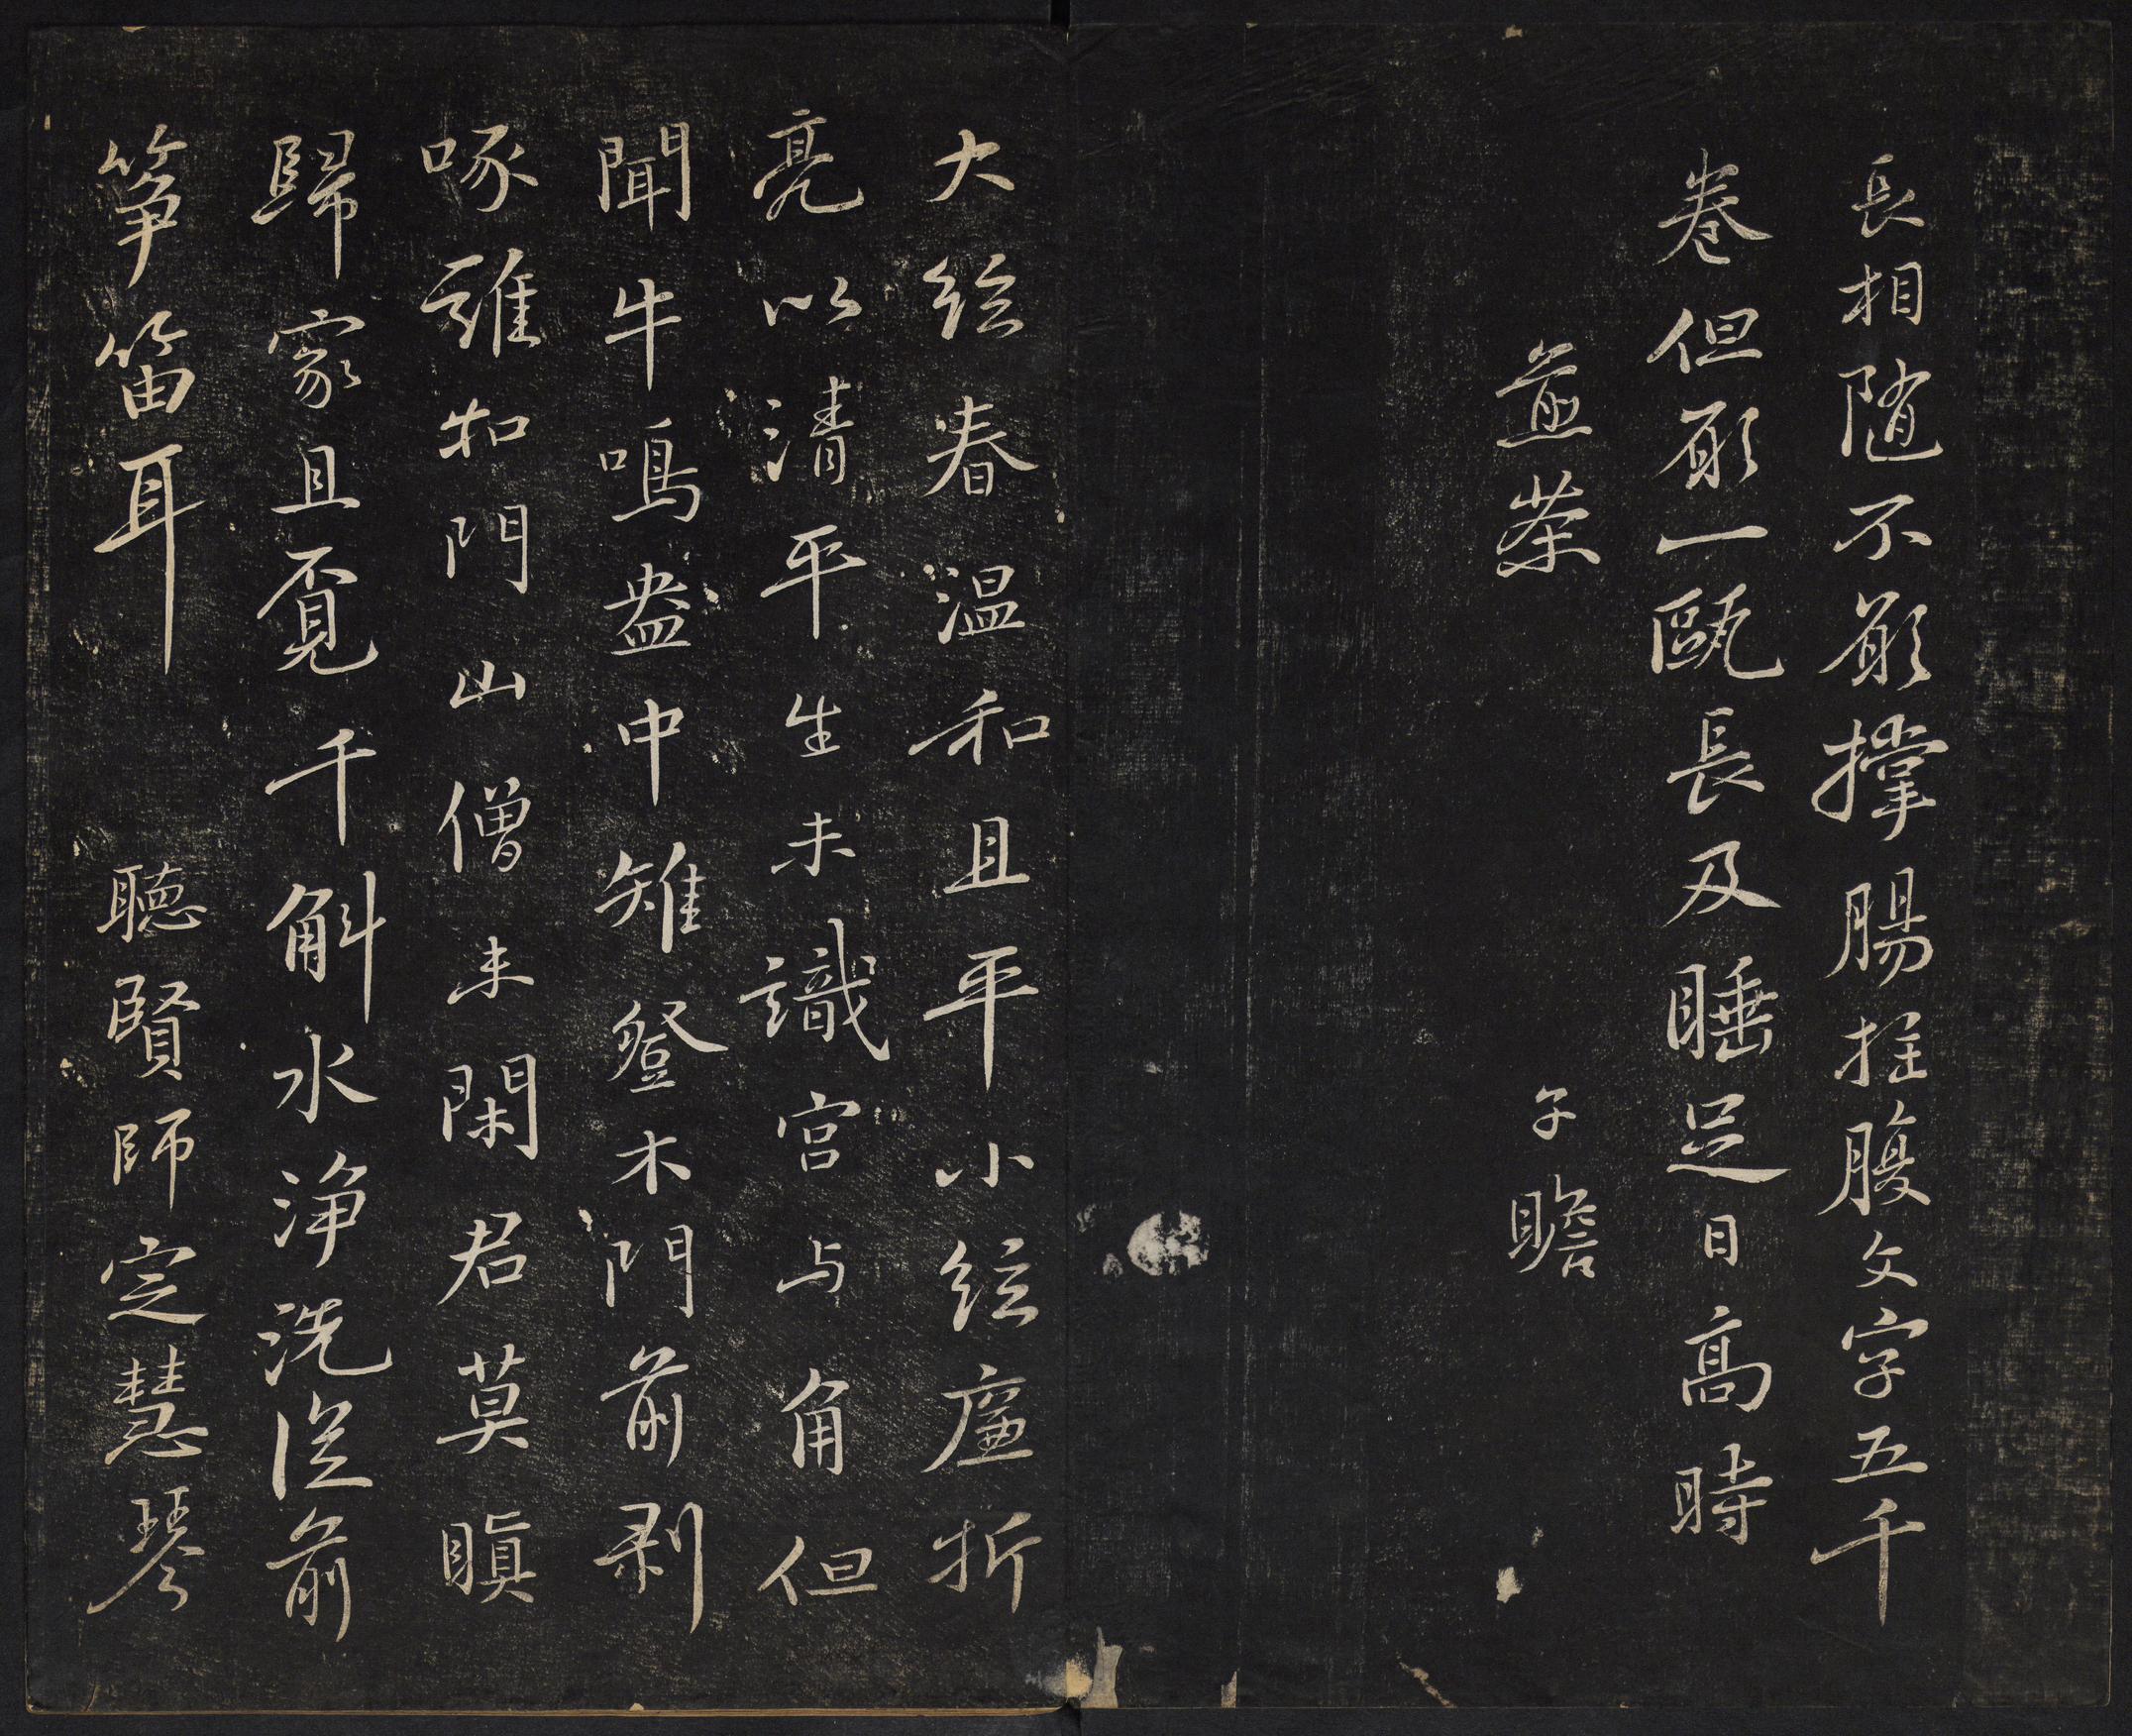 長相随不願撑腸拄腹文字五千
卷但願一甌長及睡足日高時
煎茶 子瞻
大絃春温和且平小絃廉折
亮以清平生未識宫与角但
聞牛鳴盎中雉登木門前剥
啄誰扣門山僧未閑君莫瞋
歸家且覓千斛水淨洗從前
筝笛耳 聽賢師定慧琴